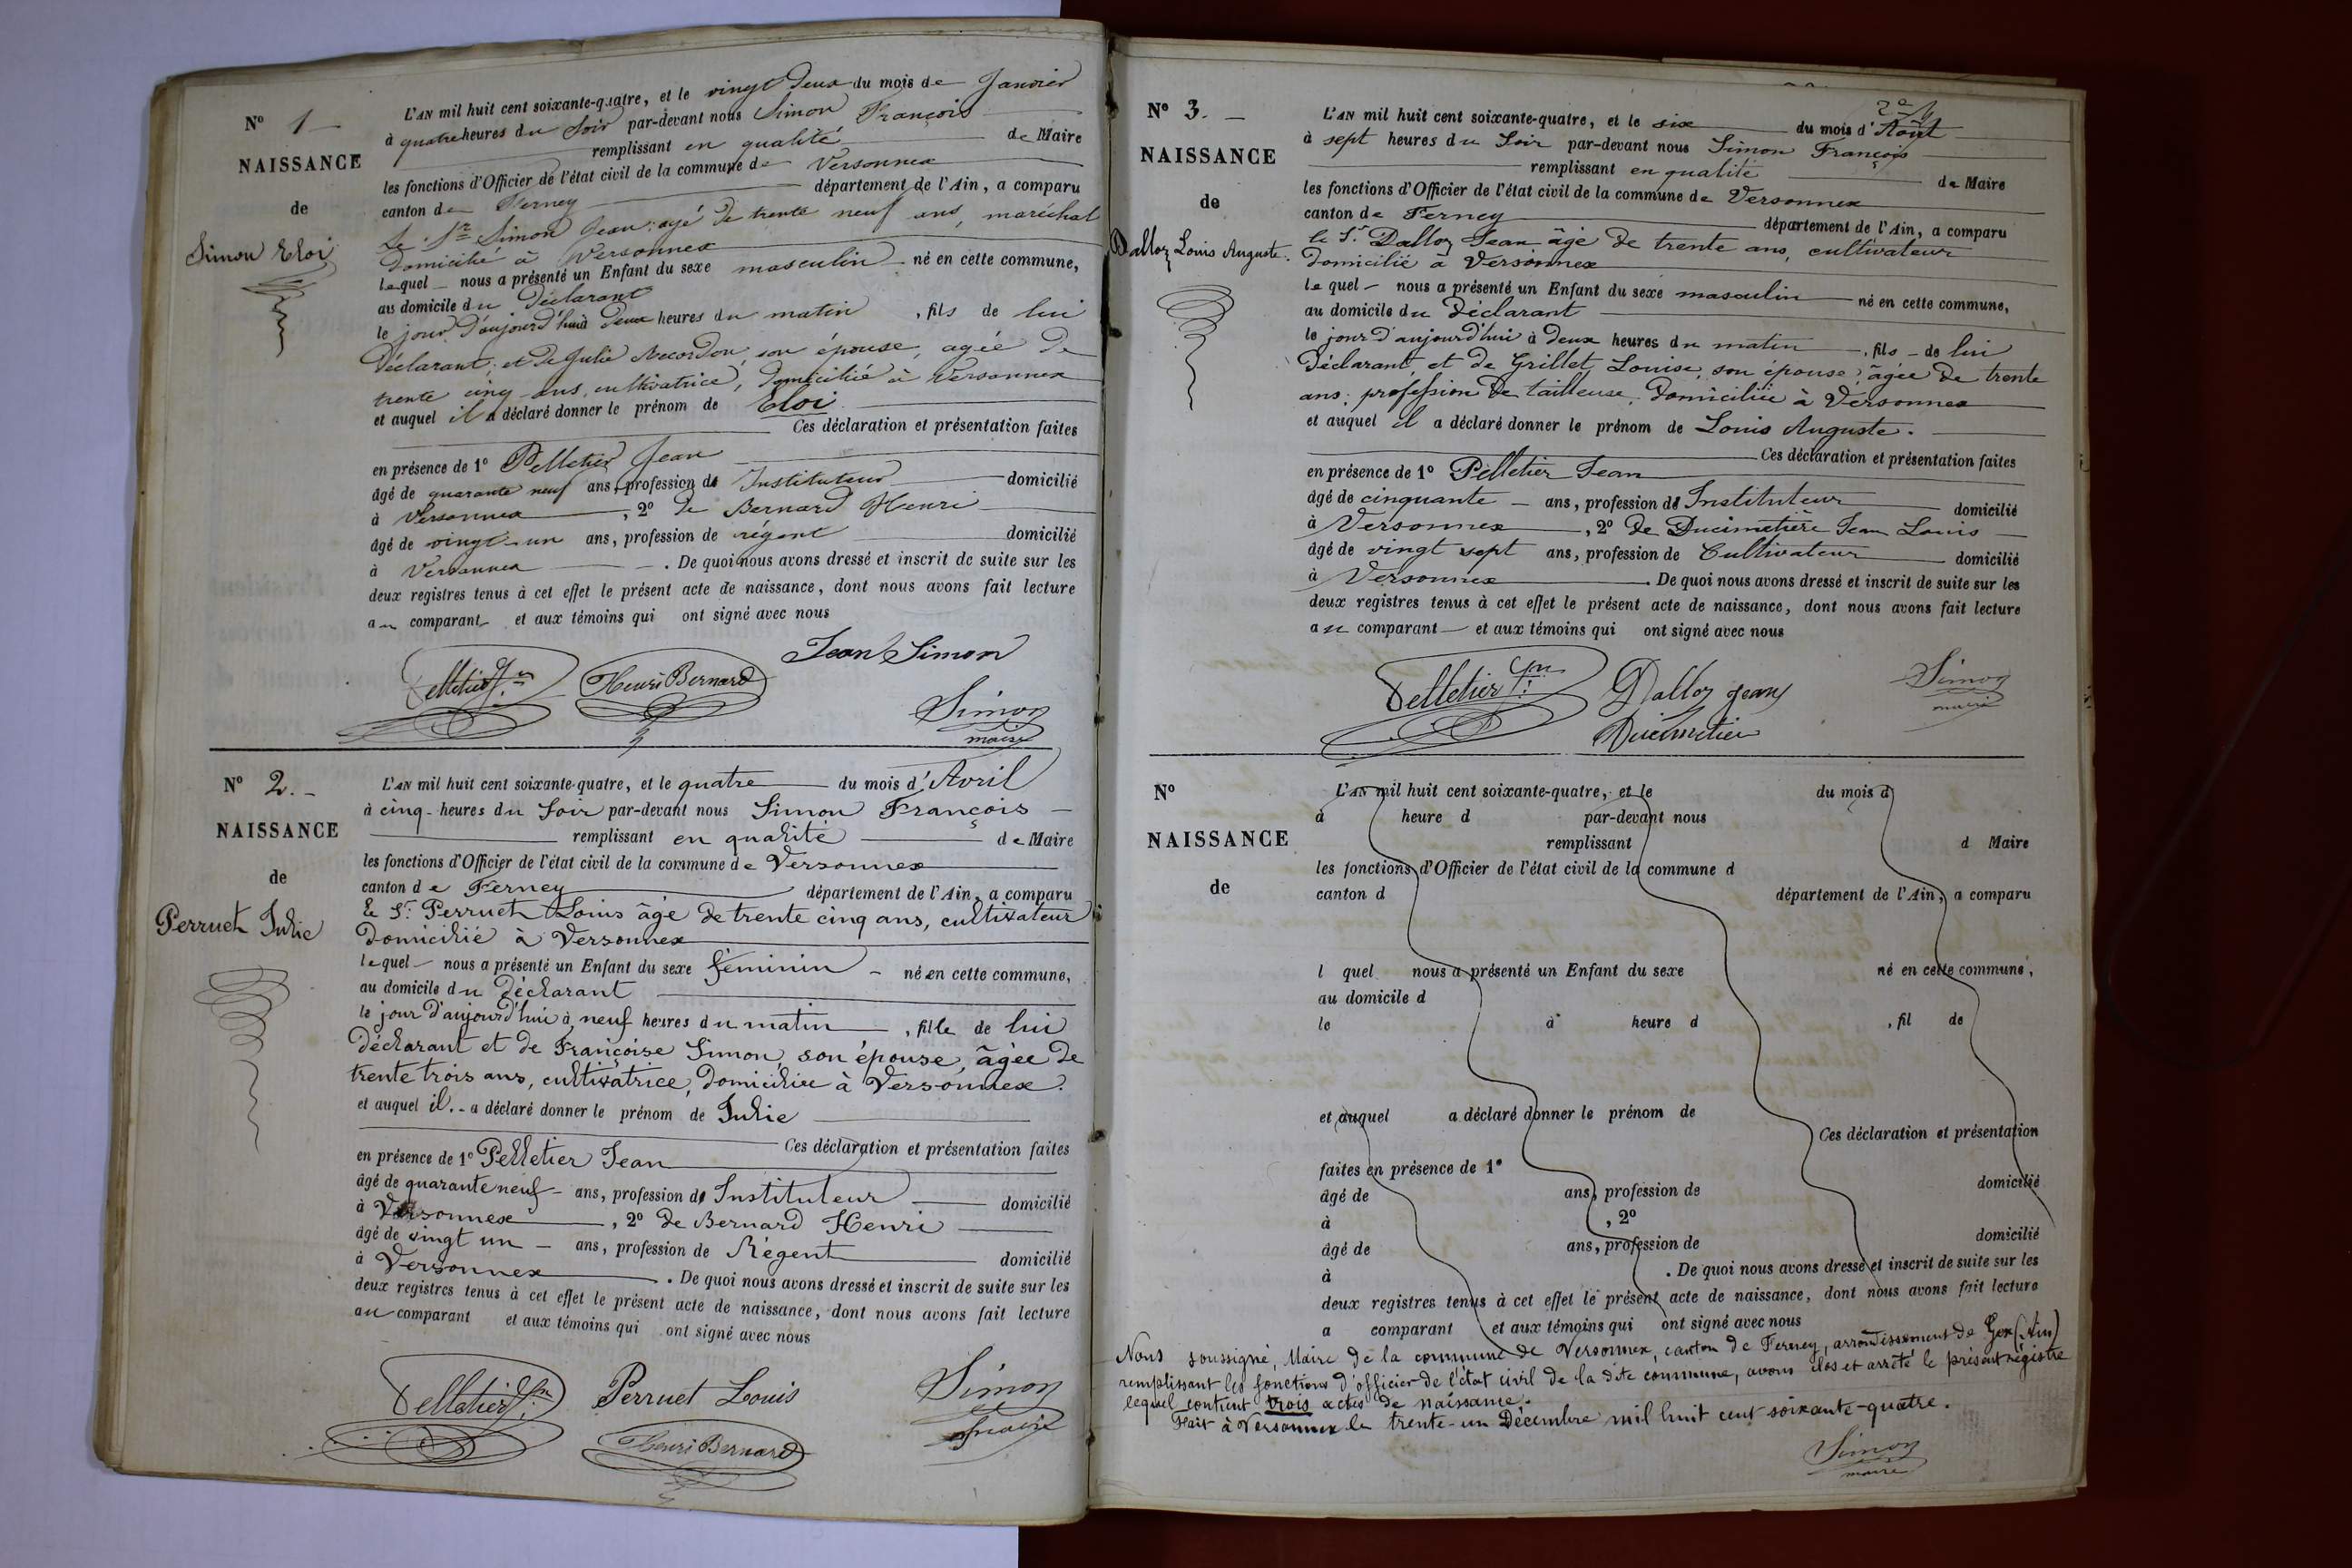 N° 1
NAISSANCE
de
Simon Eloi
L'AN mil huit cent soixante-quatre, et le vingt deux du mois de Janvier
à quatre heures du Soir par-devant nous Simon François
remplissant en qualité de Maire
les fonctions d'Officier de l'état civil de la commune de Versonnex
canton de Ferney département de l'Ain, a comparu
Le Sr Simon Jean, agé de trente neuf ans, maréchal
domicilié à Versonnex
lequel nous a présenté un Enfant du sexe masculin né en cette commune,
au domicile du Déclarant
le jour d'aujourd'hui à deux heures du matin, fils de lui
Déclarant, et de Julie Recordon, son épouse, agée de
trente cinq ans, cultivatrice, domiciliée à Versonnex
et auquel il a déclaré donner le prénom de Eloi
Ces déclaration et présentation faites
en présence de 1° Pelletier Jean
âgé de quarante neuf ans, profession de Instituteur domicilié
à Versonnex, 2° de Bernard Henri
âgé de vingt-un ans, profession de régent domicilié
à Versonnex. De quoi nous avons dressé et inscrit de suite sur les
deux registres tenus à cet effet le présent acte de naissance, dont nous avons fait lecture
au comparant et aux témoins qui ont signé avec nous
Jean Simon
Pelletier Jn Henri Bernard
Simon
maire
N° 2.
NAISSANCE
de
Perruet Julie
L'AN mil huit cent soixante-quatre, et le quatre du mois d'Avril
à cinq heures du Soir par-devant nous Simon François
remplissant en qualité de Maire
les fonctions d'Officier de l'état civil de la commune de Versonnex
canton de Ferney département de l'Ain, a comparu
le Sr Perruet Louis âgé de trente cinq ans, cultivateur
domicilié à Versonnex
lequel nous a présenté un Enfant du sexe féminin né en cette commune,
au domicile du déclarant
le jour d'aujourd'hui à neuf heures du matin, fille de lui
déclarant et de Françoise Simon, son épouse, âgée de
trente trois ans, cultivatrice, domiciliée à Versonnex.
et auquel il a déclaré donner le prénom de Julie
Ces déclaration et présentation faites
en présence de 1° Pelletier Jean
âgé de quarante neuf ans, profession de Instituteur domicilié
à Versonnex, 2° de Bernard Henri
âgé de vingt un ans, profession de Régent domicilié
à Versonnex. De quoi nous avons dressé et inscrit de suite sur les
deux registres tenus à cet effet le présent acte de naissance, dont nous avons fait lecture
au comparant et aux témoins qui ont signé avec nous
Pelletier Jn Perruet Louis Simon
maire
Henri Bernard
N° 3.
NAISSANCE
de
Dalloz Louis Auguste.
L'AN mil huit cent soixante-quatre, et le six du mois d'Août
à sept heures du Soir par-devant nous Simon François
remplissant en qualité de Maire
les fonctions d'Officier de l'état civil de la commune de Versonnex
canton de Ferney département de l'Ain, a comparu
le Sr Dalloz Jean âgé de trente ans, cultivateur
domicilié à Versonnex
lequel nous a présenté un Enfant du sexe masculin né en cette commune,
au domicile du Déclarant
le jour d'aujourd'hui à deux heures du matin, fils de lui
Déclarant, et de Grillet Louise, son épouse, âgée de trente
ans, profession de tailleuse, domiciliée à Versonnex
et auquel il a déclaré donner le prénom de Louis Auguste.
Ces déclaration et présentation faites
en présence de 1° Pelletier Jean
âgé de cinquante ans, profession de Instituteur domicilié
à Versonnex, 2° de Ducimetière Jean Louis
âgé de vingt sept ans, profession de Cultivateur domicilié
à Versonnex. De quoi nous avons dressé et inscrit de suite sur les
deux registres tenus à cet effet le présent acte de naissance, dont nous avons fait lecture
au comparant et aux témoins qui ont signé avec nous
Pelletier Jn Dalloz jean Simon
maire
Ducimetier
N°
NAISSANCE
de
L'AN mil huit cent soixante-quatre, et le du mois d
à heure d par-devant nous
remplissant d Maire
les fonctions d'Officier de l'état civil de la commune d
canton d département de l'Ain, a comparu
l quel nous a présenté un Enfant du sexe né en cette commune,
au domicile d
le à heure d , fil de
et auquel a déclaré donner le prénom de
Ces déclaration et présentation
faites en présence de 1°
âgé de ans, profession de domicilié
à , 2°
âgé de ans, profession de domicilié
à . De quoi nous avons dressé et inscrit de suite sur les
deux registres tenus à cet effet le présent acte de naissance, dont nous avons fait lecture
a comparant et aux témoins qui ont signé avec nous
Nous soussigné, Maire de la commune de Versonnex, canton de Ferney, arrondissement de Gex (Ain)
remplissant les fonctions d'officier de l'état civil de la dite commune, avons clos et arrêté le présent régistre
lequel contient trois actes de naissance.
Fait à Versonnex le trente-un Décembre mil huit cent soixante-quatre.
Simon
maire